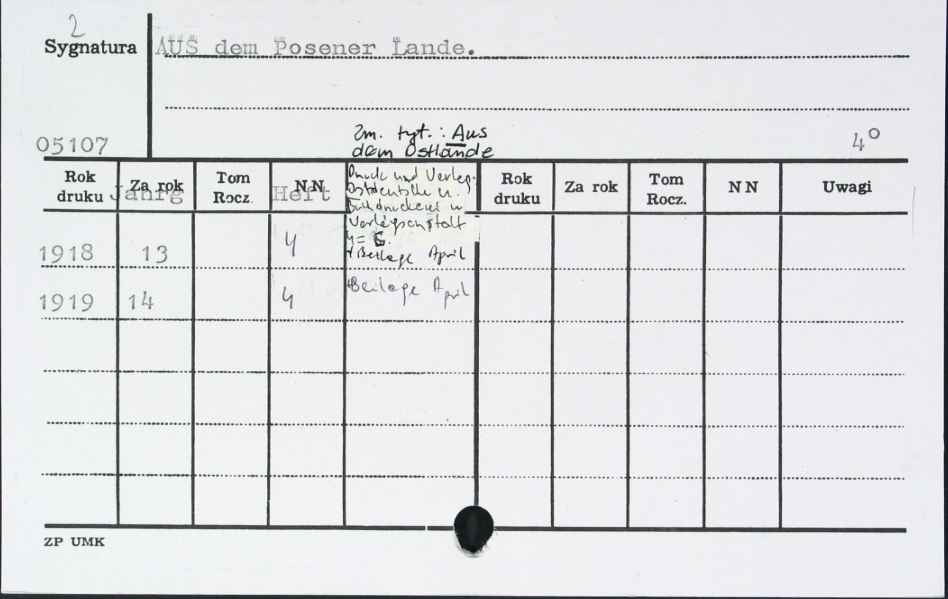 2
Sygnatura AUS dem Posener Lande.
05107
Zm. tyt.: Aus
dem Ostlande
4°
Rok druku Za rok Jahrg Tom Rocz. NN Heft
Druck und Verlag
u.
Buchdruckerei u
Verlagsanstalt
Rok druku Za rok Tom Rocz. NN Uwagi
1918 13 4 + Beilage April
1919 14 4 + Beilage April
ZP UMK